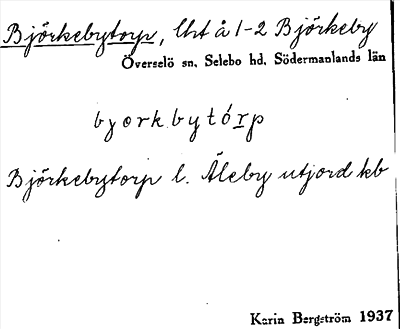 Björkebytorp, lht å 1-2 Björkeby
Överselö sn, Selebo hd, Södermanlands län
byorkbytórp
Björkebytorp l. Åleby utjord kb
Karin Bergström 1937